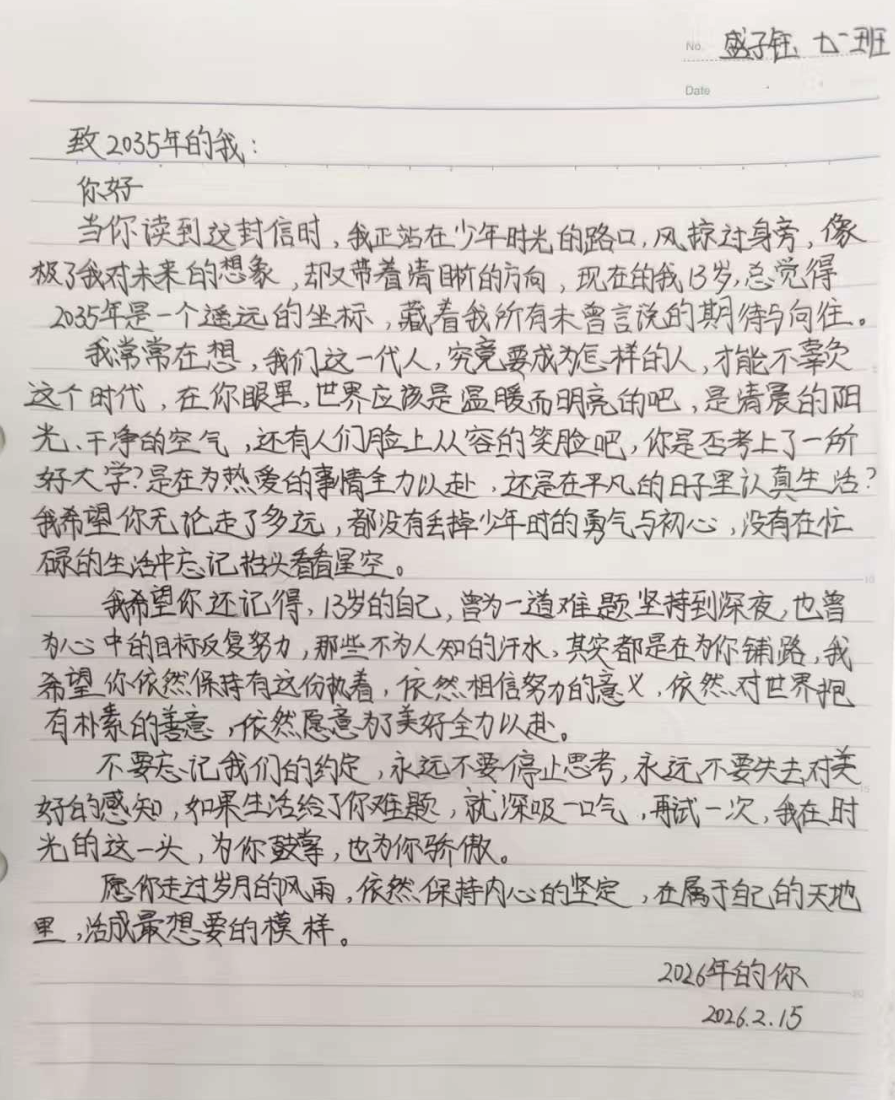 No. 盛子钰 七一班
Date
致2035年的我：
你好
当你读到这封信时，我正站在少年时光的路口，风掠过身旁，像
极了我对未来的想象，却又带着清晰的方向，现在的我13岁，总觉得
2035年是一个遥远的坐标，藏着我所有未曾言说的期待与向往。
我常常在想，我们这一代人，究竟要成为怎样的人，才能不辜负
这个时代，在你眼里，世界应该是温暖而明亮的吧，是清晨的阳
光、干净的空气，还有人们脸上从容的笑脸吧，你是否考上了一所
好大学？是在为热爱的事情全力以赴，还是在平凡的日子里认真生活？
我希望你无论走了多远，都没有丢掉少年时的勇气与初心，没有在忙
碌的生活中忘记抬头看看星空。
我希望你还记得，13岁的自己，曾为一道难题坚持到深夜，也曾
为心中的目标反复努力，那些不为人知的汗水，其实都是在为你铺路，我
希望你依然保持有这份执着，依然相信努力的意义，依然对世界抱
有朴素的善意，依然愿意为了美好全力以赴。
不要忘记我们的约定，永远不要停止思考，永远不要失去对美
好的感知，如果生活给了你难题，就深吸一口气，再试一次，我在时
光的这一头，为你鼓掌，也为你骄傲。
愿你走过岁月的风雨，依然保持内心的坚定，在属于自己的天地
里，活成最想要的模样。
2026年的你
2026.2.15